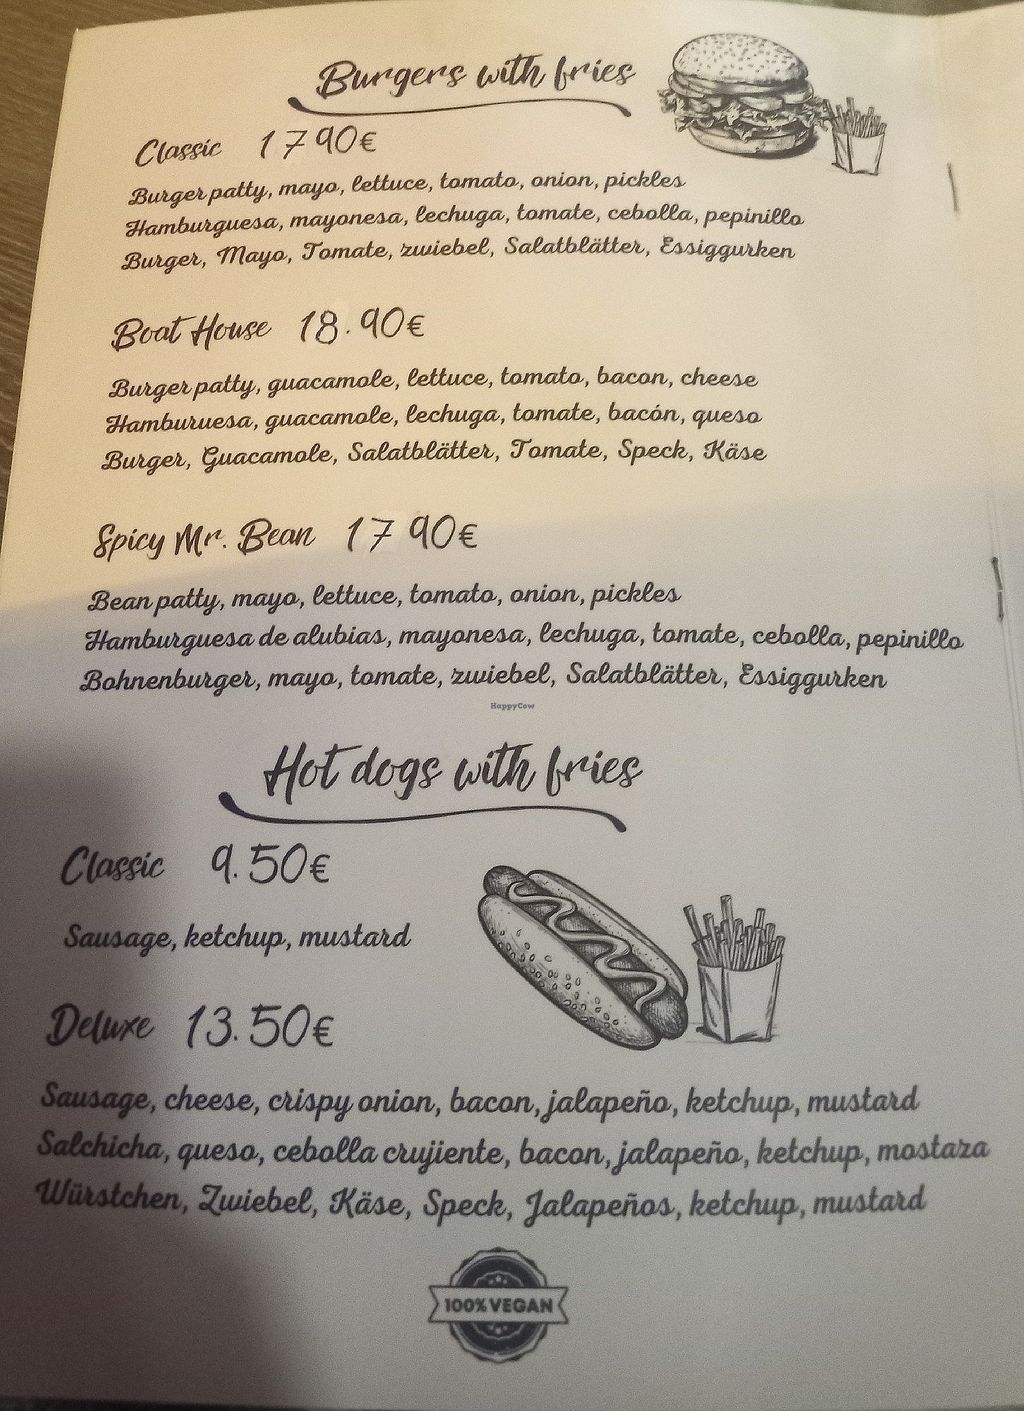 Burgers with fries
Classic 17 90€
Burger patty, mayo, lettuce, tomato, onion, pickles
Hamburguesa, mayonesa, lechuga, tomate, cebolla, pepinillo
Burger, Mayo, Tomate, zwiebel, Salatblätter, Essiggurken
Boat House 18.90€
Burger patty, guacamole, lettuce, tomato, bacon, cheese
Hamburuesa, guacamole, lechuga, tomate, bacón, queso
Burger, Guacamole, Salatblätter, Tomate, Speck, Käse
Spicy Mr. Bean 17 90€
Bean patty, mayo, lettuce, tomato, onion, pickles
Hamburguesa de alubias, mayonesa, lechuga, tomate, cebolla, pepinillo
Bohnenburger, mayo, tomate, zwiebel, Salatblätter, Essiggurken
HappyCow
Hot dogs with fries
Classic 9.50€
Sausage, ketchup, mustard
Deluxe 13.50€
Sausage, cheese, crispy onion, bacon, jalapeño, ketchup, mustard
Salchicha, queso, cebolla crujiente, bacon, jalapeño, ketchup, mostaza
Würstchen, Zwiebel, Käse, Speck, Jalapeños, ketchup, mustard
100% VEGAN